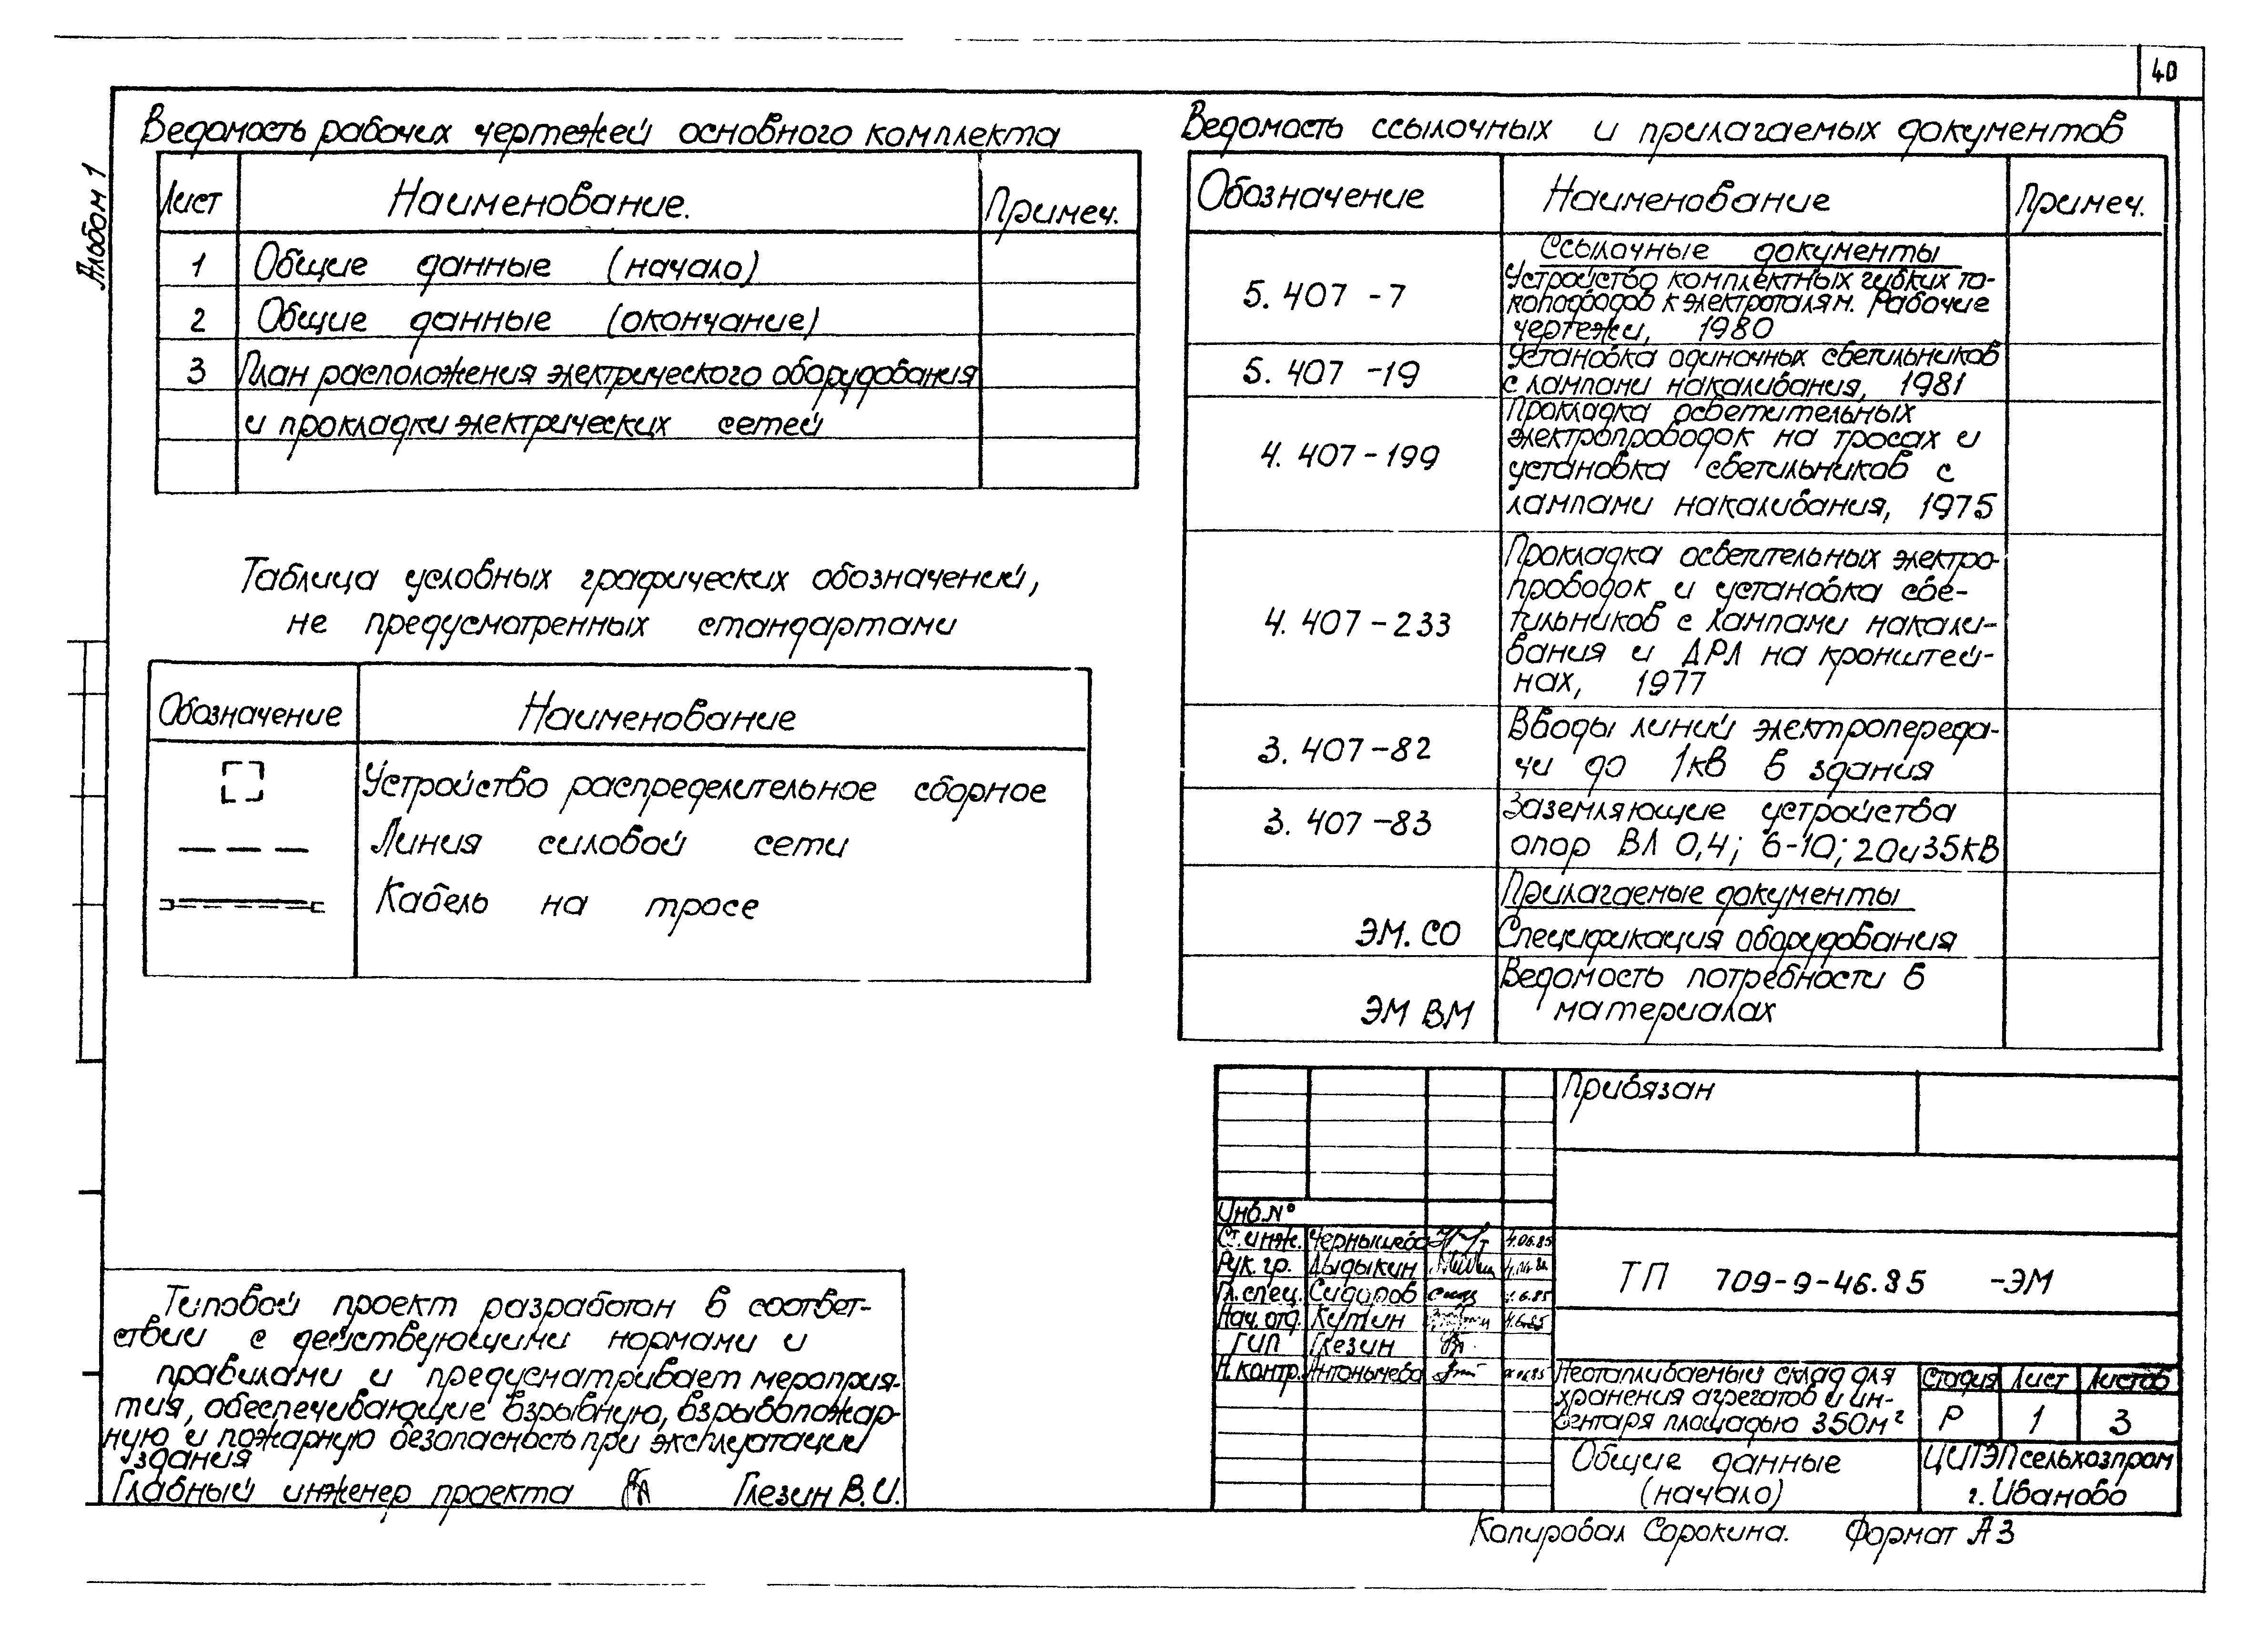 40
Альбом 1
Ведомость рабочих чертежей основного комплекта
Лист Наименование. Примеч.
1 Общие данные (начало)
2 Общие данные (окончание)
3 План расположения электрического оборудования
и прокладки электрических сетей
Таблица условных графических обозначений,
не предусмотренных стандартами
Обозначение Наименование
Устройство распределительное сборное
Линия силовой сети
Кабель на тросе
Типовой проект разработан в соответ-
ствии с действующими нормами и
правилами и предусматривает мероприя-
тия, обеспечивающие взрывную, взрывопожар-
ную и пожарную безопасность при эксплуатации
здания
Главный инженер проекта Глезин В.И.
Ведомость ссылочных и прилагаемых документов
Обозначение Наименование Примеч.
Ссылочные документы
5.407-7 Устройство комплектных гибких то-
копроводов к электроталям. Рабочие
чертежи, 1980
5.407-19 Установка одиночных светильников
с лампами накаливания, 1981
4.407-199 Прокладка осветительных
электропроводок на тросах и
установка светильников с
лампами накаливания, 1975
4.407-233 Прокладка осветительных электро-
проводок и установка све-
тильников с лампами накали-
вания и ДРЛ на кронштей-
нах, 1977
3.407-82 Вводы линий электропереда-
чи до 1кв в здания
3.407-83 Заземляющие устройства
опор ВЛ 0,4; 6-10; 20и35кВ
Прилагаемые документы
ЭМ.СО Спецификация оборудования
ЭМ ВМ Ведомость потребности в
материалах
Привязан
Инв.№
Ст.инж. Чернышева 4.06.85
Рук.гр. Дыдыкин
Гл.спец. Сидоров 4.6.85
Нач.отд. Кутин 4.6.85
ГИП Глезин
Н.контр. Антонычева
ТП 709-9-46.85 -ЭМ
Неотапливаемый склад для
хранения агрегатов и ин-
вентаря площадью 350м²
Стадия Лист Листов
Р 1 3
Общие данные
(начало)
ЦИТЭПсельхозпром
г. Иваново
Копировал Сорокина. Формат А3